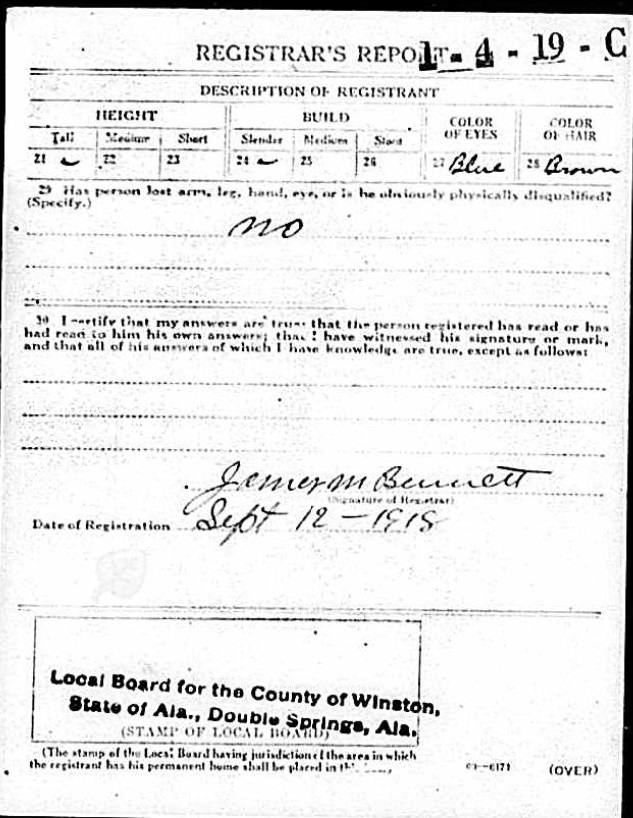 REGISTRAR'S REPORT 1 - 4 - 19 - C
DESCRIPTION OF REGISTRANT
HEIGHT BUILD COLOR OF EYES COLOR OF HAIR
Tall Medium Short Slender Medium Stout
21 ✓ 22 23 24 ✓ 25 26 27 Blue 28 Brown
29 Has person lost arm, leg, hand, eye, or is he obviously physically disqualified?
(Specify.)
no
30 I certify that my answers are true; that the person registered has read or has
had read to him his own answers; that I have witnessed his signature or mark,
and that all of his answers of which I have knowledge are true, except as follows:
James M Bennett
(Signature of Registrar)
Date of Registration Sept 12 - 1918
Local Board for the County of Winston,
State of Ala., Double Springs, Ala.
(STAMP OF LOCAL BOARD)
(The stamp of the Local Board having jurisdiction of the area in which
the registrant has his permanent home shall be placed in
(OVER)